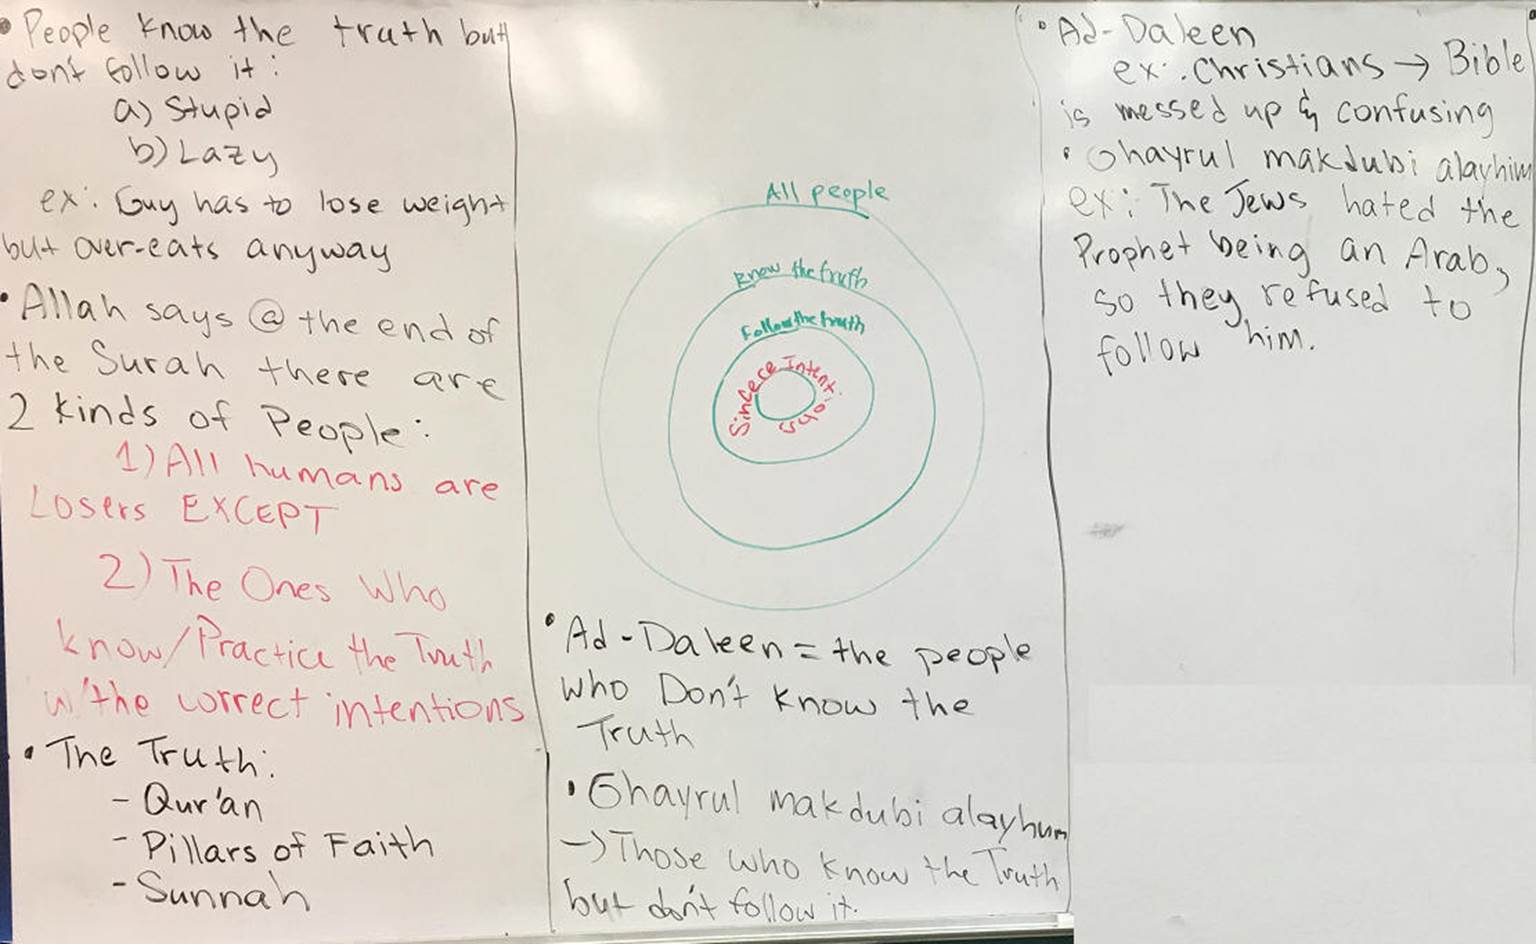 • People know the truth but
don't follow it:
a) Stupid
b) Lazy
ex: Guy has to lose weight
but over-eats anyway
• Allah says @ the end of
the Surah there are
2 kinds of People:
1) All humans are
Losers EXCEPT
2) The Ones Who
know/Practice the Truth
w/the correct intentions
• The Truth:
- Qur'an
- Pillars of Faith
- Sunnah
All people
know the truth
Follow the truth
Sincere Intentions
• Ad-Daleen = the people
who Don't know the
Truth
• Ghayrul makdubi alayhum
→ Those who know the Truth
but don't follow it.
• Ad-Daleen
ex: Christians → Bible
is messed up & confusing
• Ghayrul makdubi alayhim
ex: The Jews hated the
Prophet being an Arab,
so they refused to
follow him.